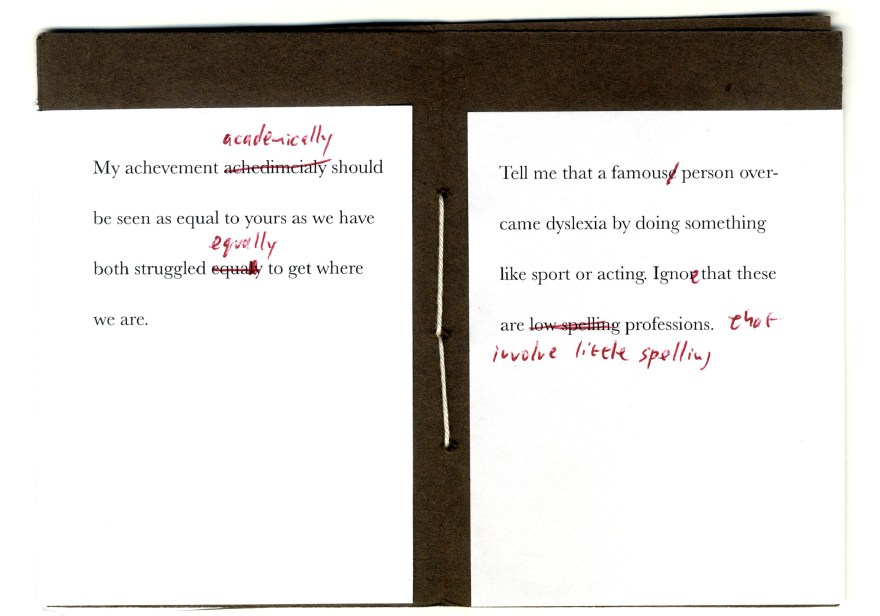 academically
My achevement achedimcialy should
be seen as equal to yours as we have
equally
both struggled equaly to get where
we are.
Tell me that a famouse person over-
came dyslexia by doing something
like sport or acting. Ignore that these
are low spelling professions. that
involve little spelling